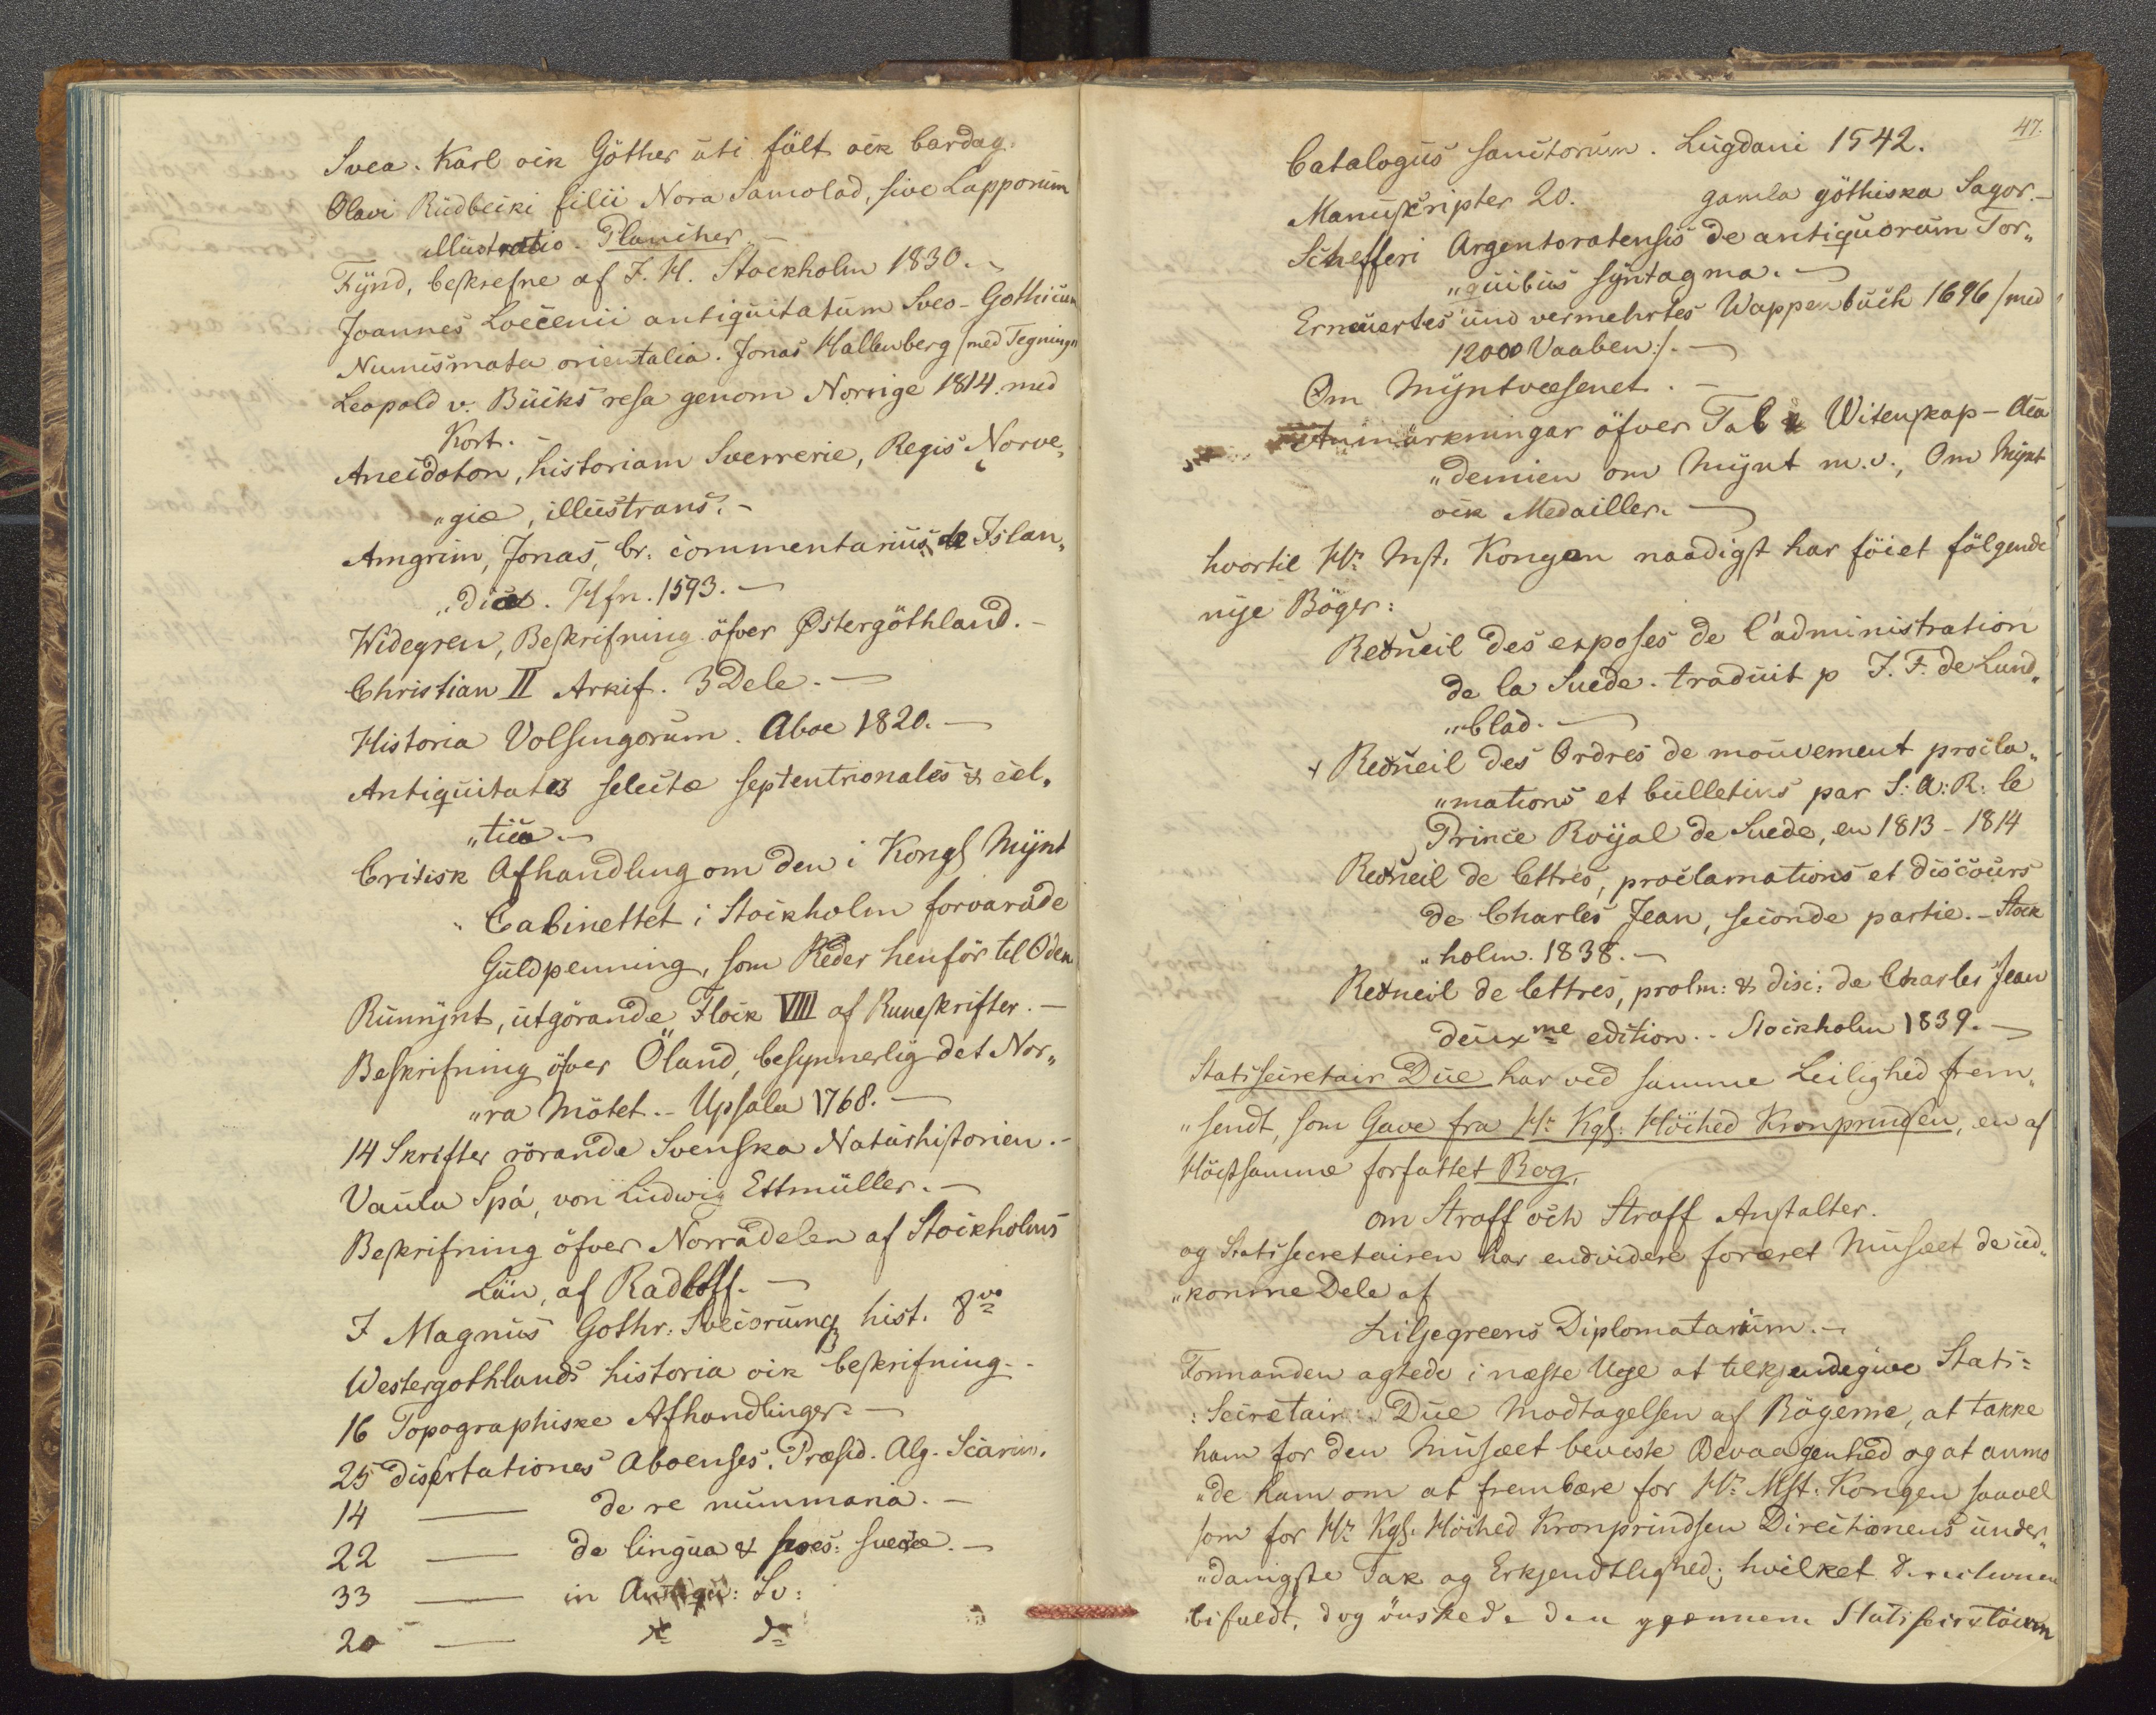 Svea. Karl ock Göther uti fält ock bardag.
Olavi Rudbecki filii Nora Samolad, sive Lapporum
illustratio. Plancher
Fÿnd, beskrefne af J. H. Stockholm 1830.
Joannes Loccenii antiquitatum Sveo-Gothicum
Numismata orientalia. Jonas Hallenberg /med Tegning"
Leopold v. Bucks resa genom Norrige 1814. med
Kort. -
Anecdoton, historiam Sverrerie, Regis Norve„
„giæ, illustrans. -
Arngrim, Jonas, br. commentarius de Islan„
„dia. Hfn. 1593. -
Widegren, Beskrifning öfver Østergöthland. -
Christian II Arkif. 3 Dele. -
Historia Volsungorum. Aboe 1820. -
Antiquitates selectæ septentrionales & cel„
„tica. -
Critisk Afhandling om den i Kongl Mÿnt
Cabinettet i Stockholm forvarade
Guldpenning, som Reder henför til Oden
Runnÿnt, utgörande Flock VIII af Runeskrifter. -
Beskrifning öfver Öland, besynnerlig det Nor„
„ra Mötet. - Upsala 1768. -
14 Skrifter rörande Svenska Naturhistorien. -
Vaula Spá, von Ludwig Ettmüller. -
Beskrifning öfver Norradelen af Stockholms
Län, af Radloff. -
J Magnus Gothr: Svecorumq hist. 8vo
Westergothlands historia ock beskrifning. -
16 Topographiske Afhandlinger. -
25 disertationes Aboenses. Præsid. Alg. Scarin.
14 — de re nummaria. -
22 — de lingua & poes: suecæ. -
33 — in Antiqu: Sv:
20 — do do
47.
Catalogus sanctorum. Lugdani 1542.
Manuskripter 20. gamla göthiska Sagor. -
Schefferi Argentoratensis de antiquorum Tor„
„quibus syntagma. -
Erneuertes und vermehrtes Wappenbuch 1696 /med
12000 Vaaben:/. -
Om Mÿntvæsenet. -
Anmärkningar öfver Tal i Witenskap-Aca
„demien om Mÿnt m.v., Om Mÿnt
ock Medailler. -
hvortil Hs. Mst. Kongen naadigst har föiet fölgende
nÿe Böger:
Recueil des exposes de l'administration
de la Suede. traduit p J. F. de Lund„
„blad. -
+ Recueil des Ordres de mouvement procla„
„mations et bulletins par S: A: R: le
Prince Royal de Suede, en 1813-1814
Recueil de lettres, proclamations et discours
de Charles Jean, seconde partie. - Stock
„holm. 1838. -
Recueil de lettres, prolm: & disc: de Charles Jean
deuxme edition. - Stockholm 1839. -
Statssecretair Due har ved samme Leilighed frem„
„sendt, som Gave fra Hs Kgl: Höihed Kronprindsen, en af
Höistsamme forfattet Bog,
om Straff och Straff Anstalter.
og Statssecretairen har endvidere foræret Musæet de ud„
„komne Dele af
Liljegreens Diplomatarium. -
Formanden agtede i næste Uge at tilkjendegive Stats=
=Secretair Due Modtagelsen af Bögerne, at takke
ham for den Musæet beviste Bevaagenhed og at anmo
„de ham om at frembære for Hs: Mst. Kongen saavel
som for Hs Kgl. Höihed Kronprindsen Directionens under„
„danigste Tak og Erkjendtlighed; hvilket Directionen
bifaldt, dog önskede den gjennem Statssecretairen